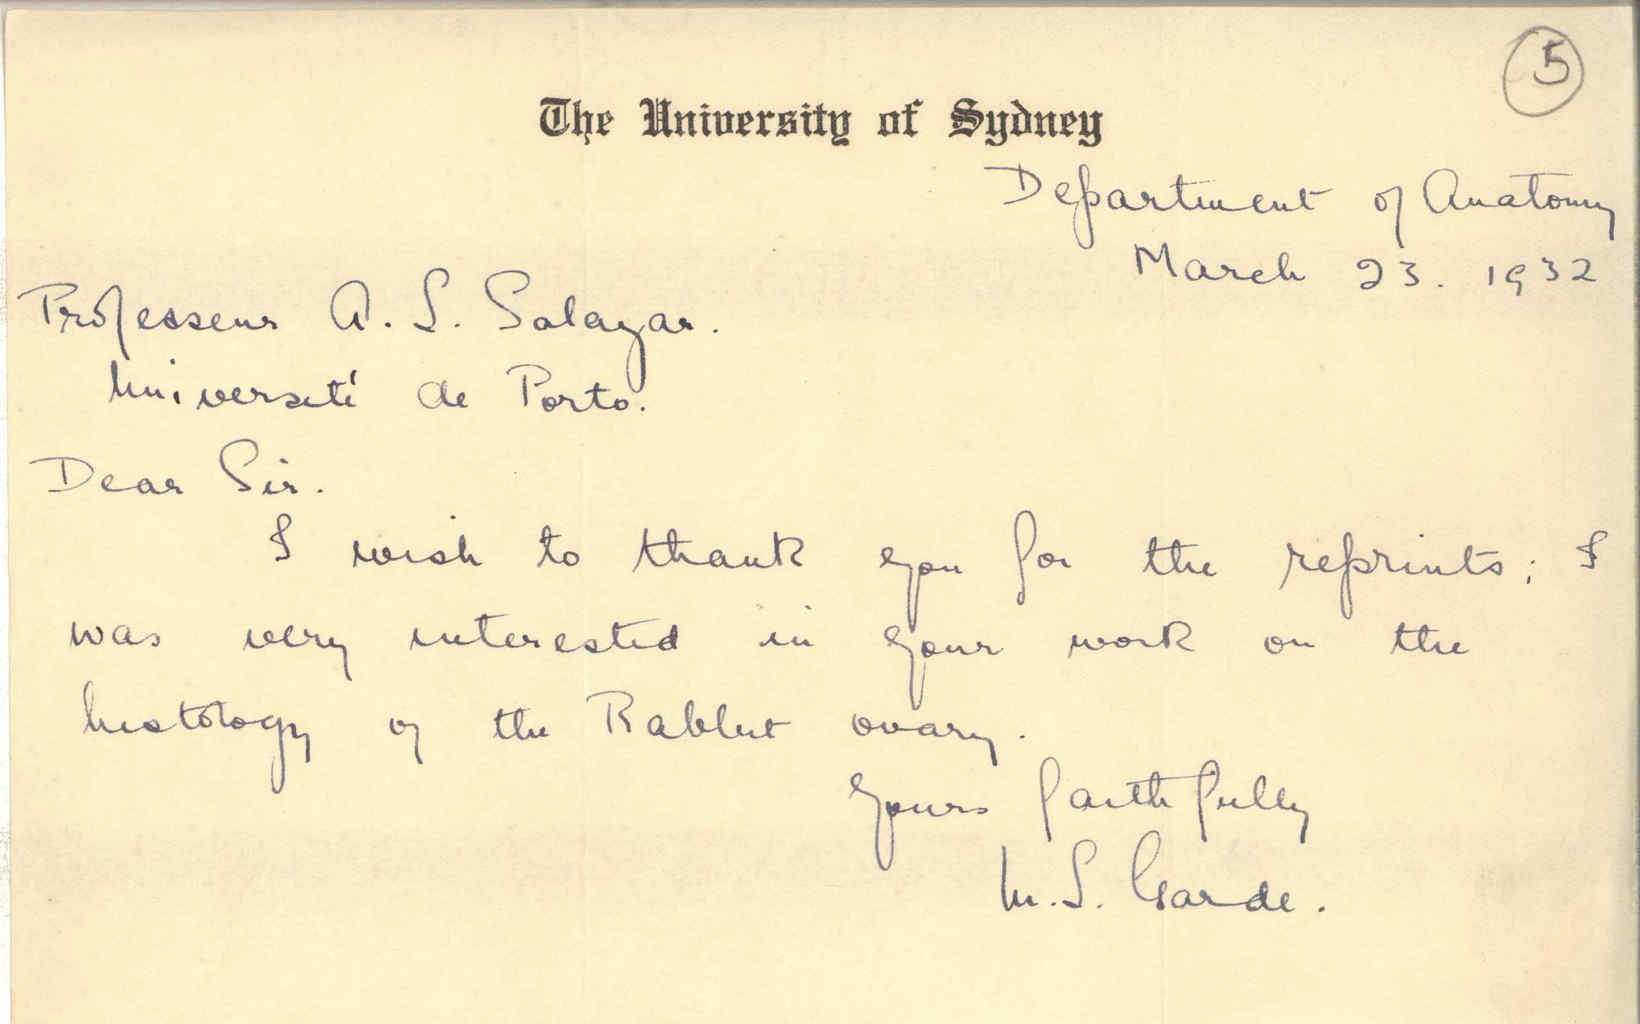 5
The University of Sydney
Department of Anatomy
March 23. 1932
Professeur A. L. Salazar.
Université de Porto.
Dear Sir.
I wish to thank you for the reprints; I
was very interested in your work on the
histology of the Rabbit ovary.
Yours faithfully
M. L. Garde.